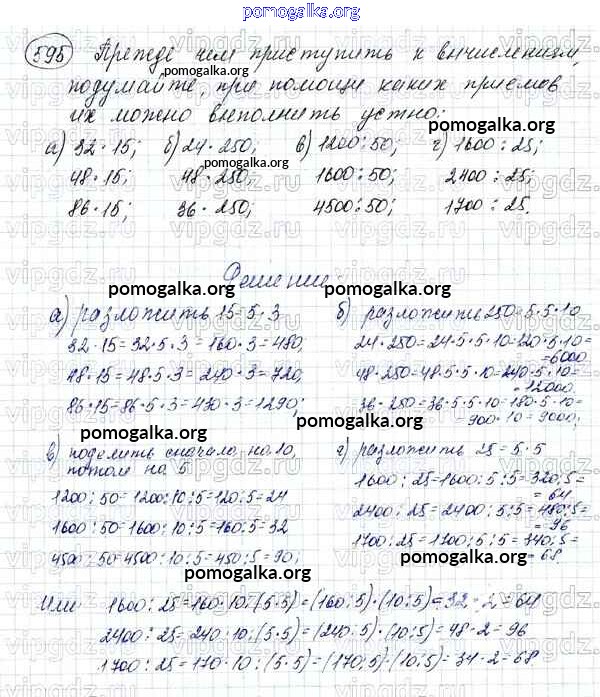 pomogalka.org
595 Прежде чем приступить к вычислениям,
pomogalka.org
подумайте, при помощи каких приемов
их можно выполнить устно:
pomogalka.org
а) 32·15; б) 24·250; в) 1200:50; г) 1600:25;
pomogalka.org
48·15; 48·250; 1600:50; 2400:25;
86·15; 36·250; 4500:50; 1700:25.
vipgdz.ru
Решение
pomogalka.org
pomogalka.org
а) разложить 15=5·3
б) разложить 250=5·5·10
32·15=32·5·3=160·3=480;
24·250=24·5·5·10=120·5·10=
=6000
48·15=48·5·3=240·3=720;
48·250=48·5·5·10=240·5·10=
=12000
86·15=86·5·3=430·3=1290;
36·250=36·5·5·10=180·5·10=
=900·10=9000;
pomogalka.org
в) поделить сначала на 10,
потом на 5
г) разложить 25=5·5
1200:50=1200:10:5=120:5=24
1600:25=1600:5:5=320:5=
=64
1600:50=1600:10:5=160:5=32
2400:25=2400:5:5=480:5=
=96
4500:50=4500:10:5=450:5=90;
1700:25=1700:5:5=340:5=
=68
pomogalka.org
pomogalka.org
Или 1600:25=160·10:(5·5)=(160:5)·(10:5)=32·2=64
2400:25=240·10:(5·5)=(240:5)·(10:5)=48·2=96
1700:25=170·10:(5·5)=(170:5)·(10:5)=34·2=68
pomogalka.org